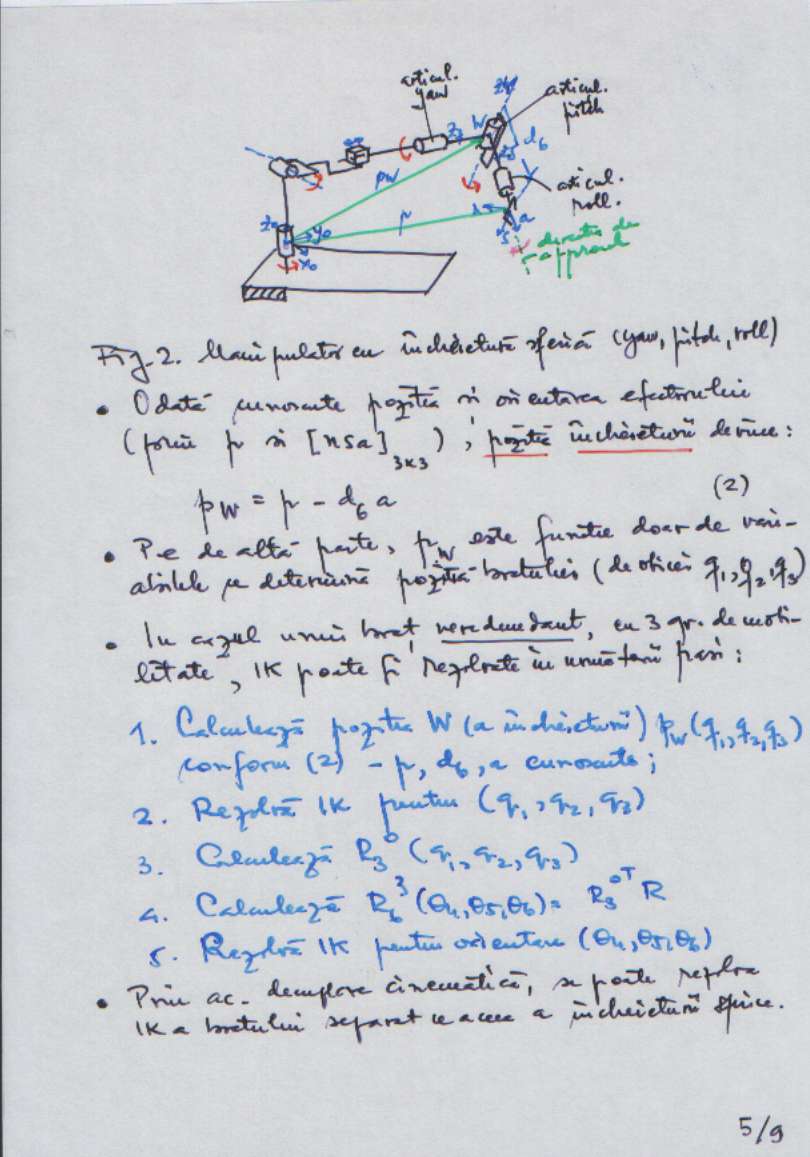 articul.
yaw
articul.
pitch
articul.
roll.
W
z3
d6
pW
p
z0
y0
x0
a
s
directia de
approach
Fig. 2. Manipulator cu încheietură sferică (yaw, pitch, roll)
• Odată cunoscute poziția și orientarea efectorului
(prin p și [n s a]3x3), poziția încheieturii devine:
pW = p - d6 a (2)
• Pe de altă parte, pW este funcție doar de vari-
abilele ce determină poziția brațului (de obicei q1, q2, q3)
• In cazul unui braț neredundant, cu 3 gr. de mobi-
litate, IK poate fi rezolvată în următorii pași:
1. Calculează poziția W (a încheieturii) pW(q1, q2, q3)
conform (2) - p, d6, a cunoscute;
2. Rezolvă IK pentru (q1, q2, q3)
3. Calculează R3^0 (q1, q2, q3)
4. Calculează R6^3 (θ4, θ5, θ6) = R3^0T R
5. Rezolvă IK pentru orientare (θ4, θ5, θ6)
• Prin ac. decuplare cinematică, se poate rezolva
IK a brațului separat de aceea a încheieturii sferice.
5/9